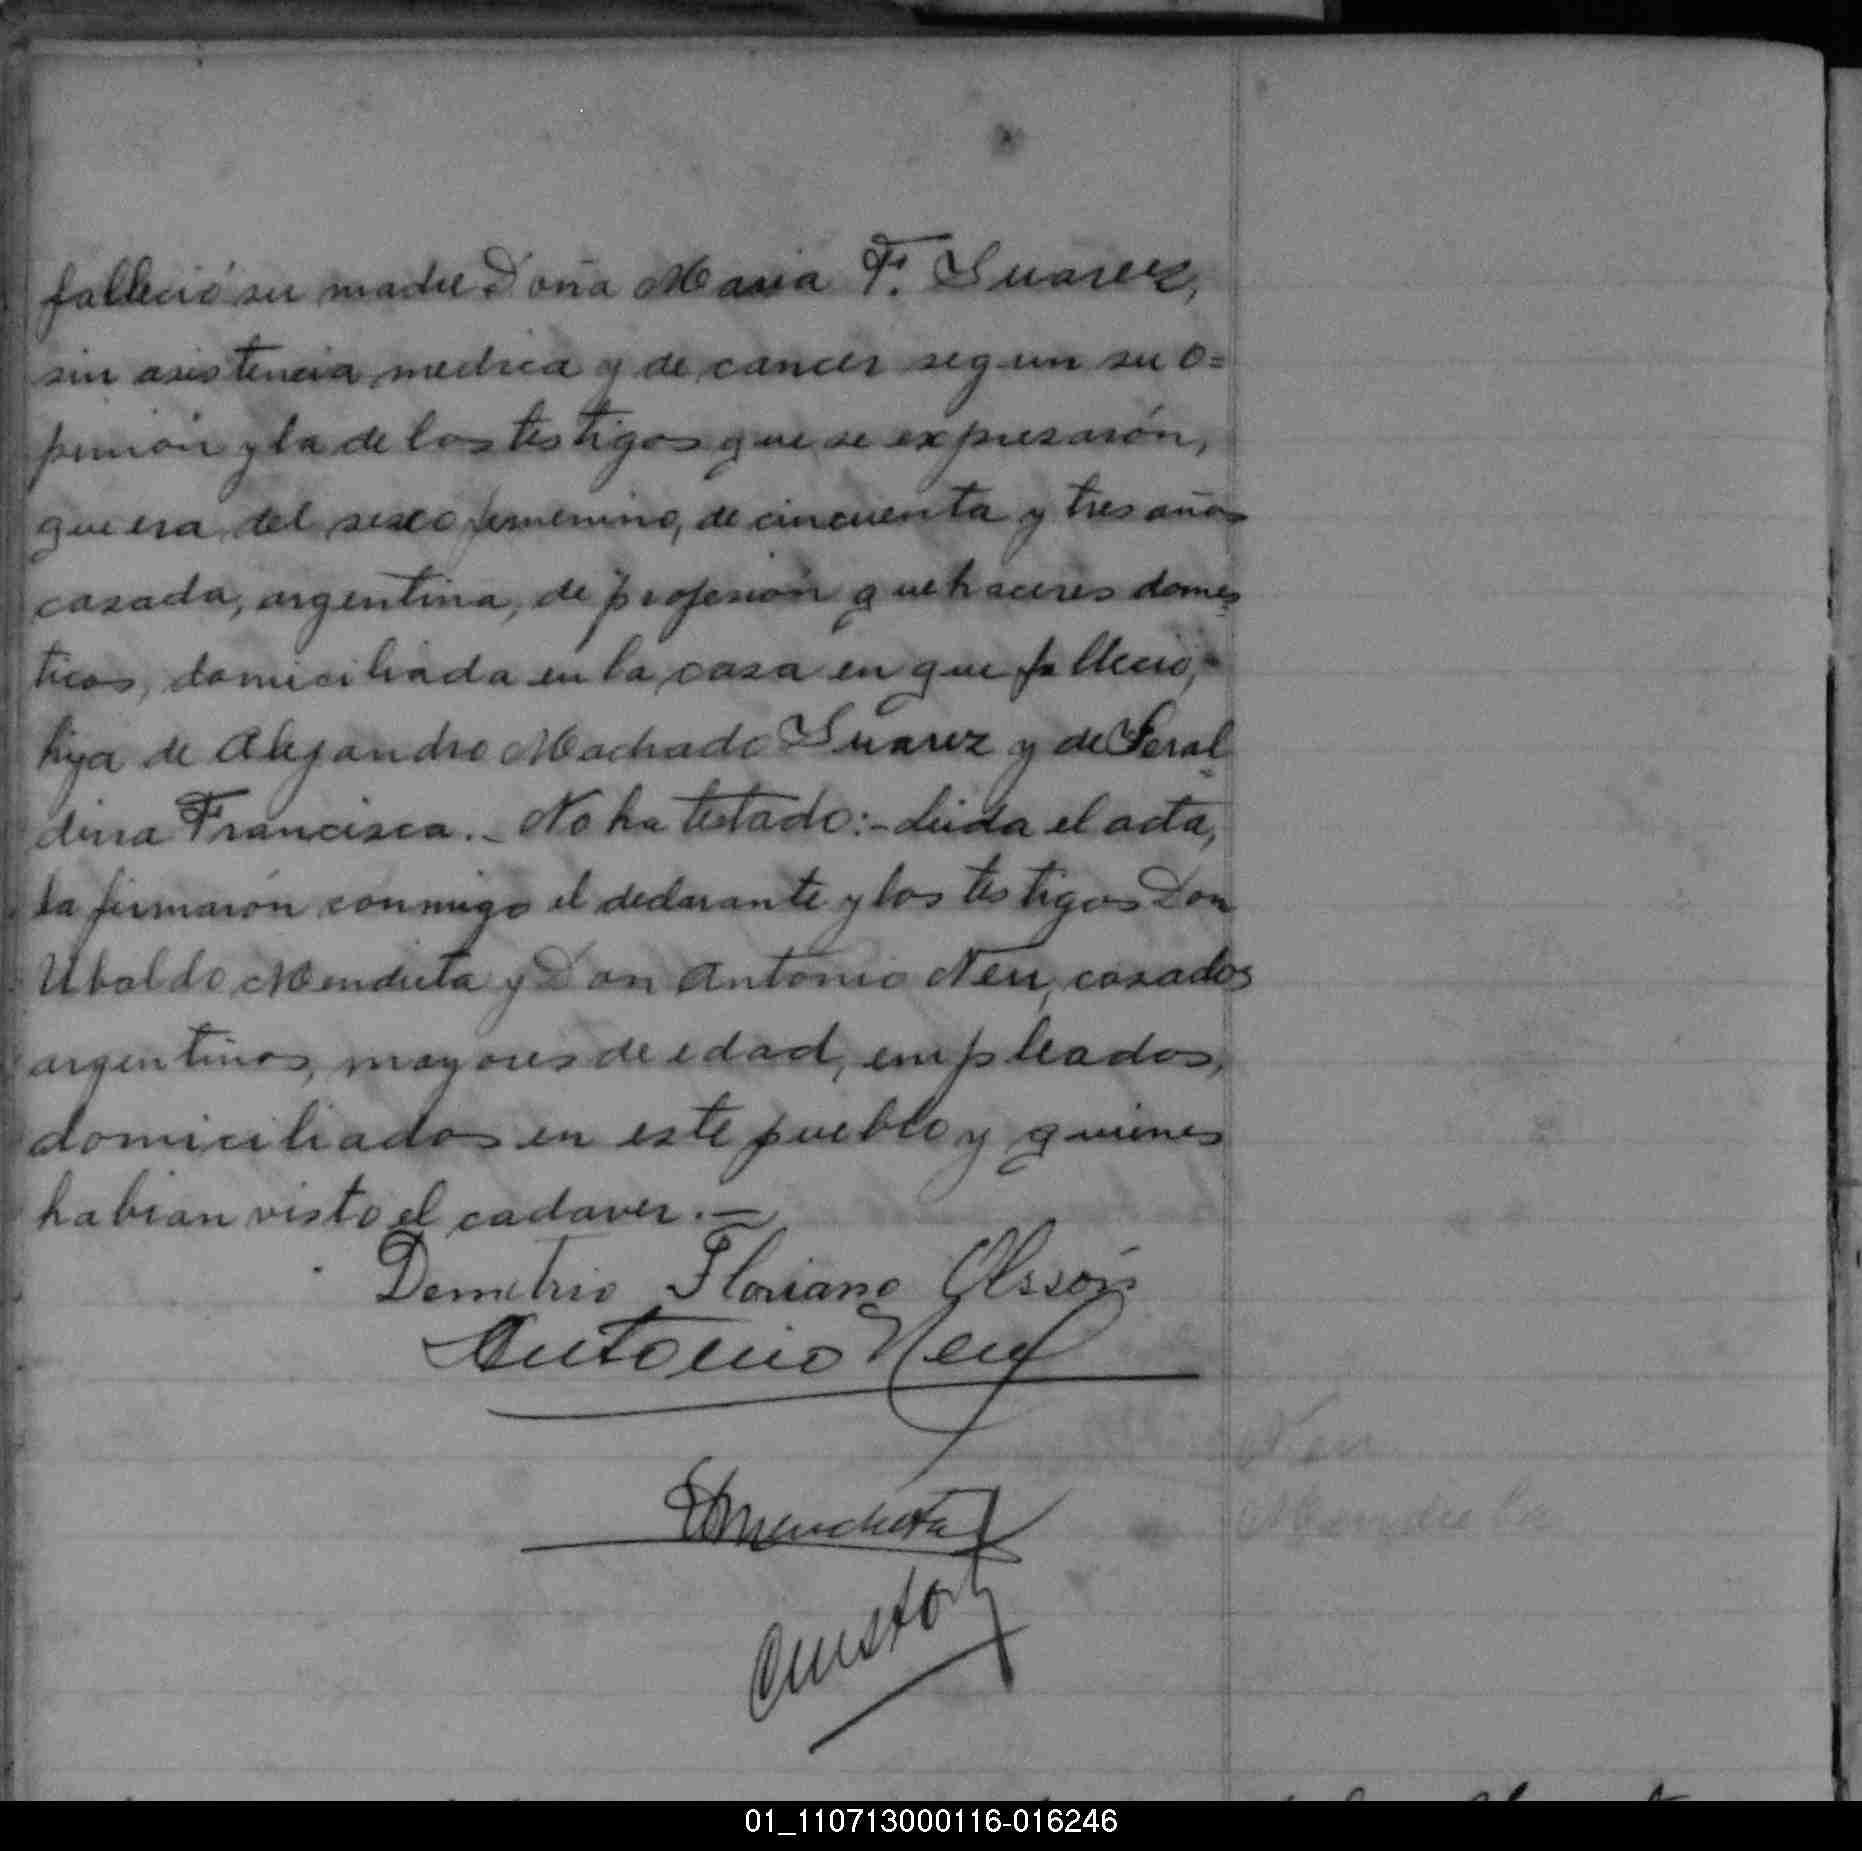 falleció su madre Doña Maria F. Suarez,
sin asistencia medica y de cancer segun su o=
pinion y la de los testigos que se expresarón,
que era del sexo femenino, de cincuenta y tres años
casada, argentina, de profesión quehaceres domes
ticos, domiciliada en la casa en que falleció,-
hija de Alejandro Machado Suarez y de Geral
dina Francisca._ No ha testado:- Leida el acta,
la firmarón conmigo el declarante y los testigos Don
Ubaldo Mendieta y Don Antonio Neu, casados
argentinos, mayores de edad, empleados,
domiciliados en este pueblo y quienes
habian visto el cadaver.—
Demetrio Floriano Olssón
Antonio Neu
Neu
UMendieta
Mendieta
01_110713000116-016246